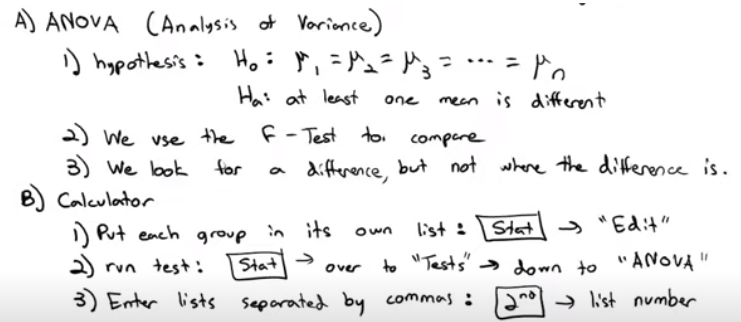 A) ANOVA (Analysis of Variance)
1) hypothesis : H₀ : μ₁ = μ₂ = μ₃ = ... = μₙ
Hₐ: at least one mean is different
2) We use the F - Test to compare
3) We look for a difference, but not where the difference is.
B) Calculator
1) Put each group in its own list : Stat → "Edit"
2) run test : Stat → over to "Tests" → down to "ANOVA"
3) Enter lists separated by commas : 2nd → list number